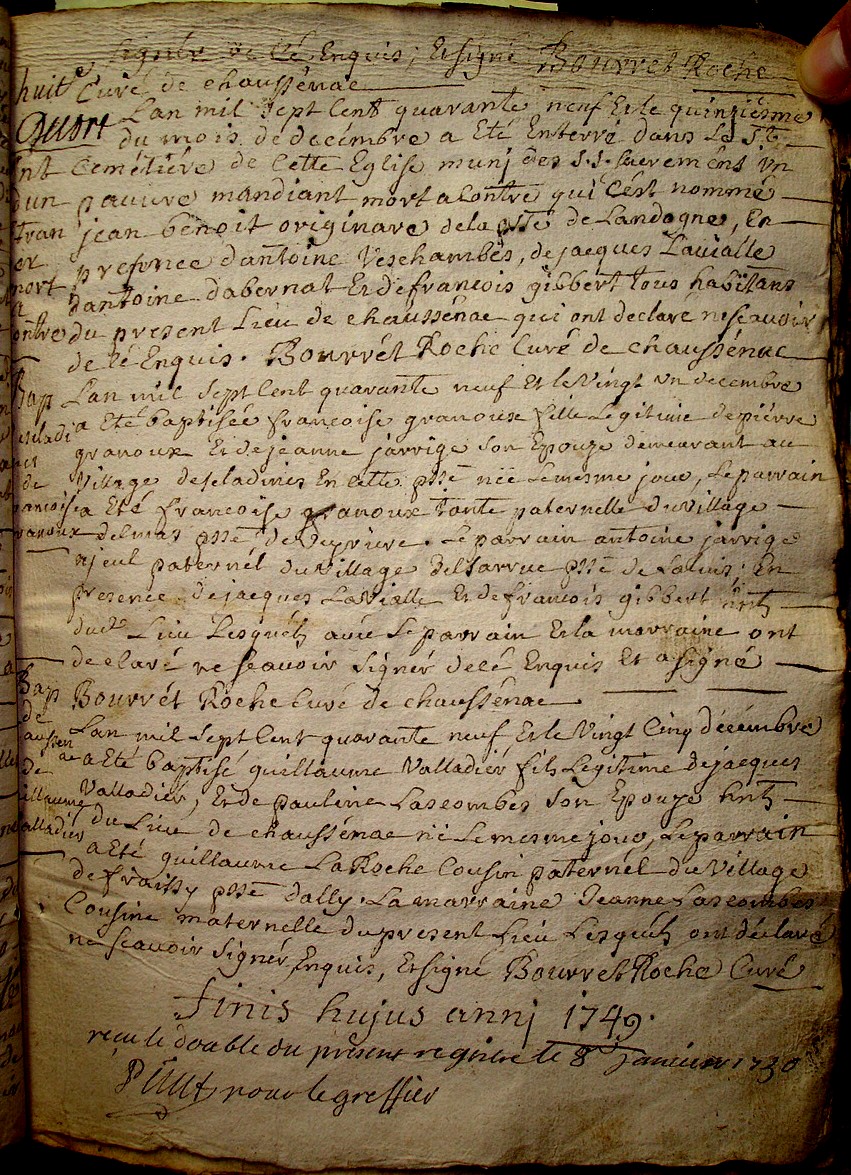 signér de cé Enquis; Et signé Bourret Roche
huit Curé de chaussénac
Lan mil sept Cent quarante neuf Et le quinziésme
du mois de decémbre a Eté Enterré dans Le St.
Cemétiére de Cette Eglise munj des S.S. sacreménts un
d'un pauvre mandiant mort a Contre qui C'ést nommé
jean benoit originare de la psse de Landogne, En
mort presence d'antoine Veschambés, de jacques Lavialle
d'antoine dabernat Et de francois gibbert tous habitans
ontre du present Lieu de chaussénac qui ont declaré ne scavoir
de cé Enquis. Bourrét Roche Curé de chaussénac
Bap Lan mil sept Cent quarante neuf Et le Vingt un decembre
a Eté baptisée francoise granoux fille Legitime de piérre
granoux Et de jeanne jarrige son Epouze demeurant au
de Village descladines En cette psse née Le mesme jour, Le parrain
a Eté francoise granoux tante paternelle du village
delmas psse de . Le parrain antoine jarrige
ajeul paternél du village del sarruc psse de ; En
presence de jacques Lavialle Et de francois gibbert hnts
dud. Lieu Lesquéls avéc Le parrain Et la marraine ont
declaré ne scavoir signér de cé Enquis Et a signé
Bap Bourrét Roche Curé de chaussénac
de Lan mil sept Cent quarante neuf Et le Vingt Cinq décémbre
a Eté baptisé guillaume Valladiér fils Legitime de jacques
de Valladiér, Et de pauline Lascombes son Epouze hnts
illaume du Lieu de chaussénac né Le mesme jour, Le parrain
alladiér a Eté guillaume La Roche Cousin paternél du Village
de fraissy psse d'ally. La marraine Jeanne Lascombes
Cousine maternelle du present Lieu Lesquéls ont déclaré
ne scavoir signér Enquis, Et signé Bourret Roche Curé
finis hujus annj 1749.
reçu le double du présent registre le 8e Janvier 1750
pour le greffier